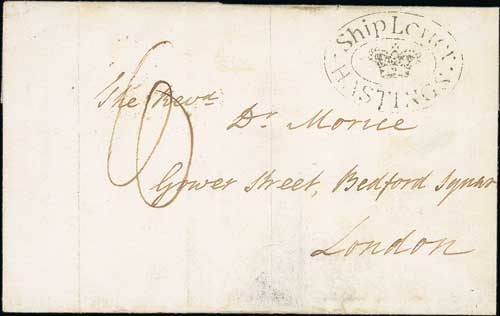 Ship Letter
HASTINGS
6
The Revd.
Dr. Morice
Gower Street, Bedford Squar
London